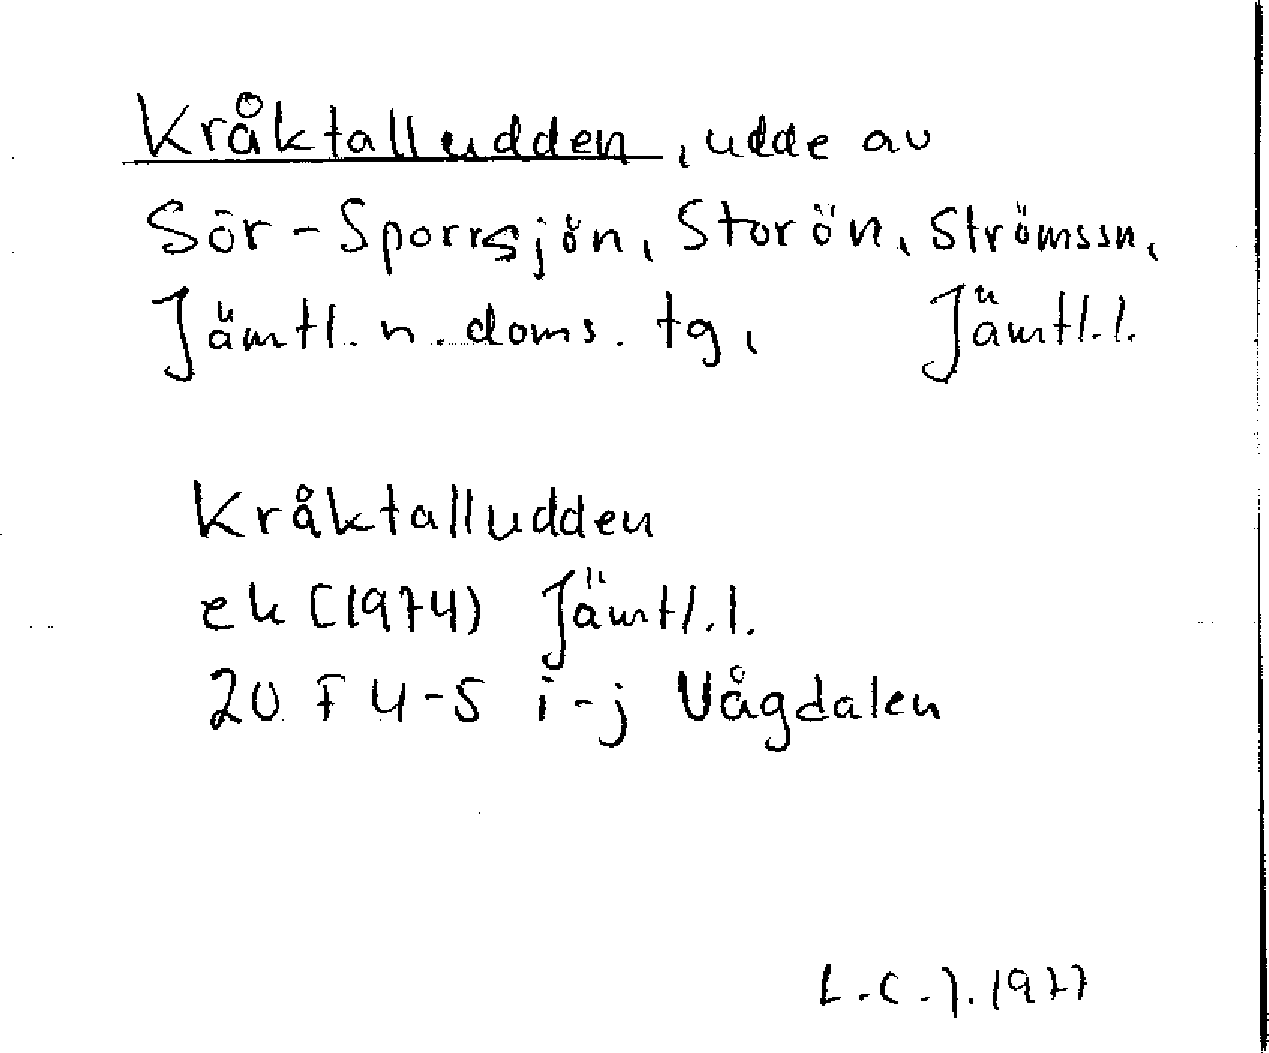 Kråktalludden, udde av
Sör-Sporrsjön, Storön, Strömssn,
Jämtl. n. doms. tg, Jämtl.l.
Kråktalludden
ek (1974) Jämtl.l.
20 F 4-5 i-j Vågdalen
L.C.J. 1977